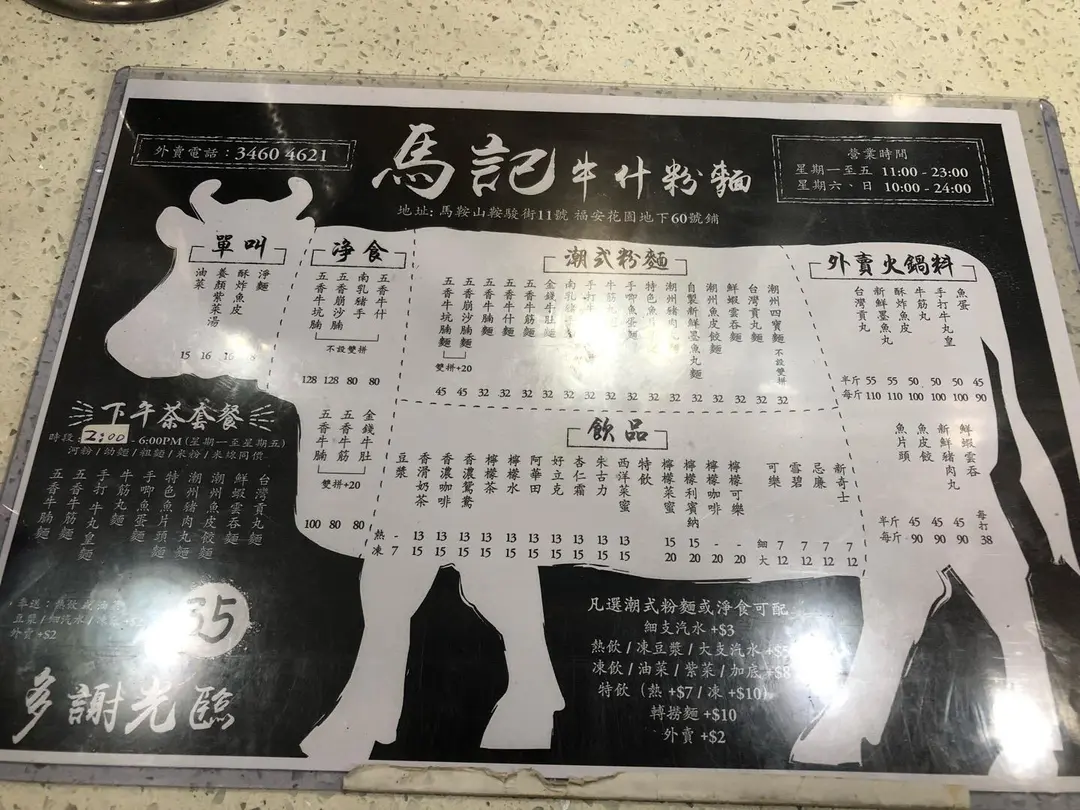 外賣電話：3460 4621
馬記牛什粉麵
地址: 馬鞍山鞍駿街11號 福安花園地下60號鋪
營業時間
星期一至五 11:00 - 23:00
星期六、日 10:00 - 24:00
單叫
淨麵
酥炸魚皮
養顏紫菜湯
油菜
15 16
淨食
五香牛什
南乳豬手
五香崩沙腩
五香牛坑腩
不設雙拼
128 128 80 80
金錢牛肚
五香牛筋
五香牛腩
雙拼+20
100 80 80
潮式粉麵
潮州四寶麵
不設雙拼
台灣貢丸麵
鮮蝦雲吞麵
潮州魚皮餃麵
自製新鮮墨魚丸麵
潮州豬肉丸麵
特色魚
手唧魚蛋麵
牛筋丸
手打
南乳豬
金錢牛肚麵
五香牛筋麵
五香牛什麵
五香牛腩麵
五香崩沙腩麵
五香牛坑腩麵
雙拼+20
45 45 32 32 32 32 32 32 32 32 32 32 32 32 32
外賣火鍋料
魚蛋
手打牛丸皇
牛筋丸
酥炸魚皮
新鮮墨魚丸
台灣貢丸
半斤 55 55 50 50 50 45
每斤 110 110 100 100 100 90
鮮蝦雲吞
新鮮豬肉丸
魚皮餃
魚片頭
半斤 45 45 45
每斤 90 90 90
每打 38
飲品
新奇士
忌廉
雪碧
可樂
檸檬可樂
檸檬咖啡
檸檬利賓納
檸檬菜蜜
特飲
西洋菜蜜
朱古力
杏仁霜
好立克
阿華田
檸檬水
檸檬茶
香濃鴛鴦
香濃咖啡
香滑奶茶
豆漿
熱 - 13 13 13 13 13 13 13 13 13 13 15 15 - -
凍 7 15 15 15 15 15 15 15 15 15 15 20 20 20 20
細 7 7 7 7
大 12 12 12 12
下午茶套餐
時段: 2:00 - 6:00PM (星期一至星期五)
河粉 / 幼麵 / 粗麵 / 米粉 / 米線同價
台灣貢丸麵
鮮蝦雲吞麵
潮州魚皮餃麵
潮州豬肉丸麵
特色魚片頭麵
手唧魚蛋麵
牛筋丸麵
手打牛丸皇麵
五香牛筋麵
五香牛腩麵
35
外賣 +$2
多謝光臨
凡選潮式粉麵或淨食可配
細支汽水 +$3
熱飲 / 凍豆漿 / 大支汽水 +$5
凍飲 / 油菜 / 紫菜 / 加底 +$8
特飲 (熱 +$7 / 凍 +$10)
轉撈麵 +$10
外賣 +$2